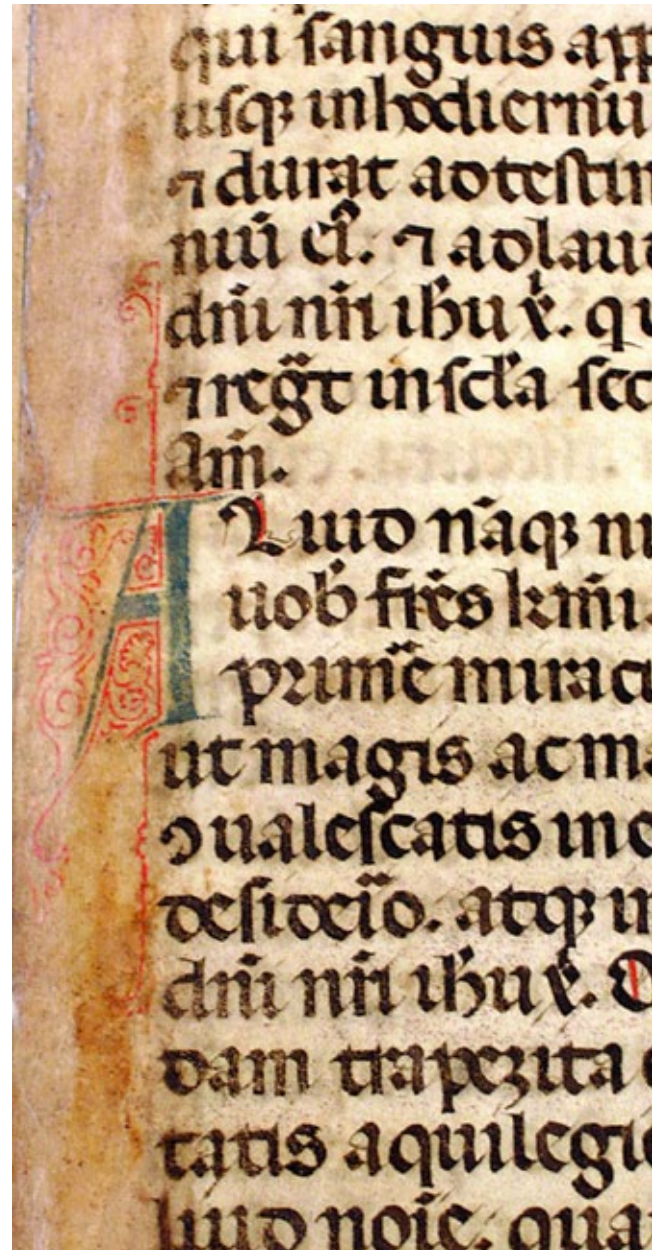 qui sanguis app
usq; in hodiernū
⁊ durat ad testim
niū eı̄. ⁊ ad laud
dn̄i nr̄i ih̄u x̄. q
⁊ regn̄t in sc̄la sec
am̄.
Aliud nāq; m
uob̄ fr̄es k̄mi.
prime miracu
ut magis ac ma
ꝯualescatis in
desideı̄o. atq; in
dn̄i nr̄i ih̄u x̄.
dam trapezita
tatis aquilegie
liud noı̄e. qua